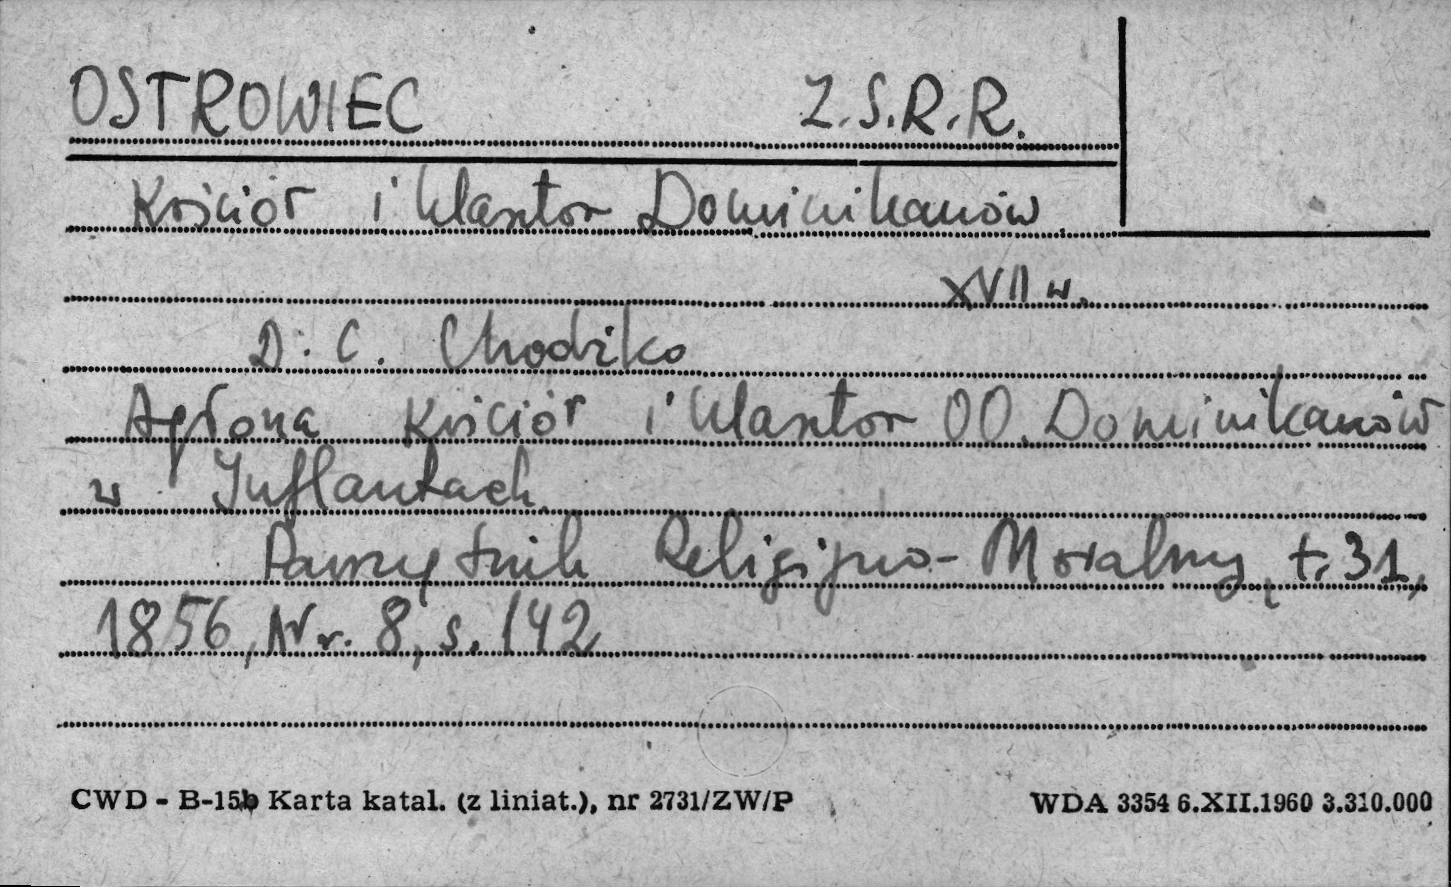 OSTROWIEC Z.S.R.R.
Kościół i klasztor Dominikanów.
XVII w.
D. C. Chodźko
Agłona Kościół i klasztor OO. Dominikanów
w Inflantach.
Pamiętnik Religijno-Moralny, t. 31,
1856, Nr. 8, s. 142
CWD - B-15b Karta katal. (z liniat.), nr 2731/ZW/P WDA 3354 6.XII.1960 3.310.000